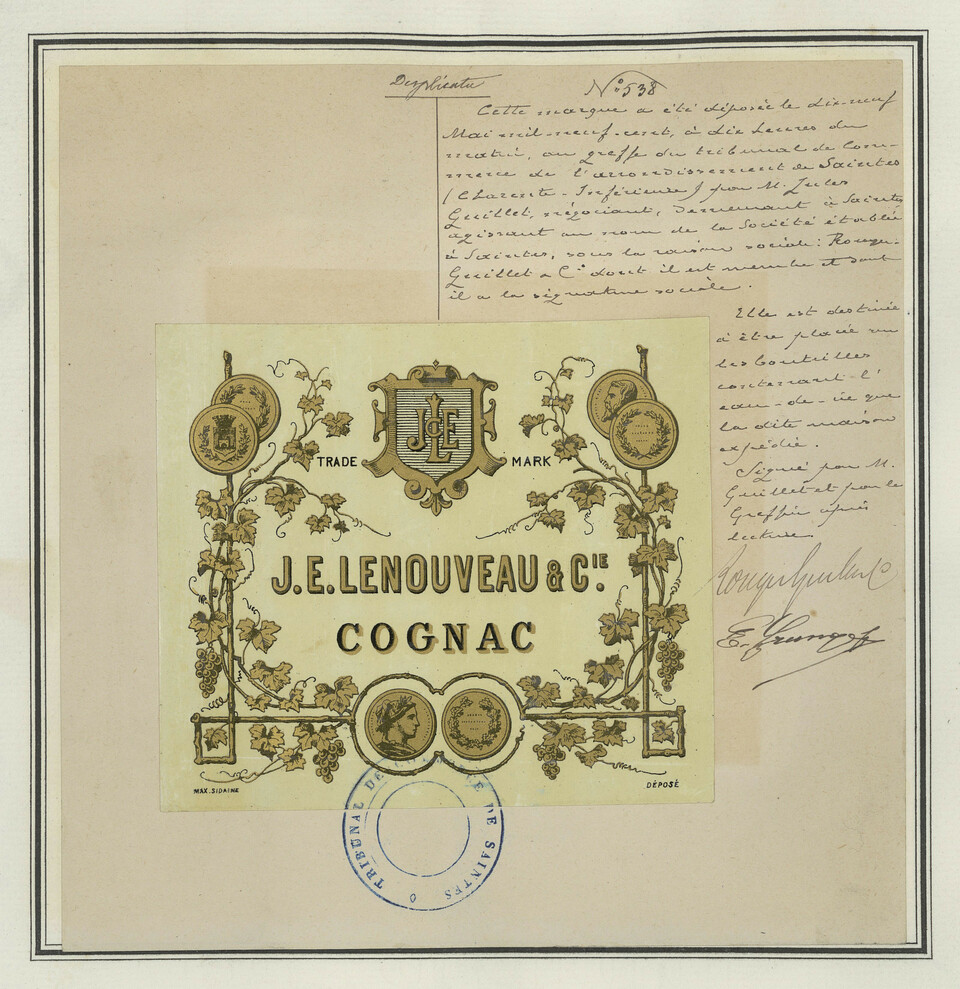 Duplicata
N° 538
Cette marque a été déposée le dix-neuf
Mai mil-neuf-cent, à dix heures du
matin, au greffe du tribunal de Com-
merce de l'arrondissement de Saintes
(Charente-Inférieure) par M. Jules
Guillet, négociant, demeurant à Saintes
agissant au nom de la Société établie
à Saintes, sous la raison sociale: Rouyer
Guillet & Cie dont il est membre et dont
il a la signature sociale.
Elle est destinée
à être placée sur
les bouteilles
contenant l'
eau-de-vie que
la dite maison
expédie.
Signé par M.
Guillet et par le
Greffier après
lecture
Rouyer Guillet & Co
TRADE MARK
JLE
J.E. LENOUVEAU & CIE.
COGNAC
MAX. SIDAINE
DÉPOSÉ
TRIBUNAL DE COMMERCE DE SAINTES